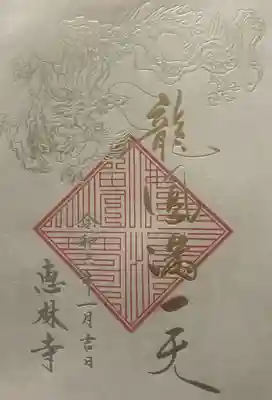 龍満一天
令和六年一月吉日
恵林寺